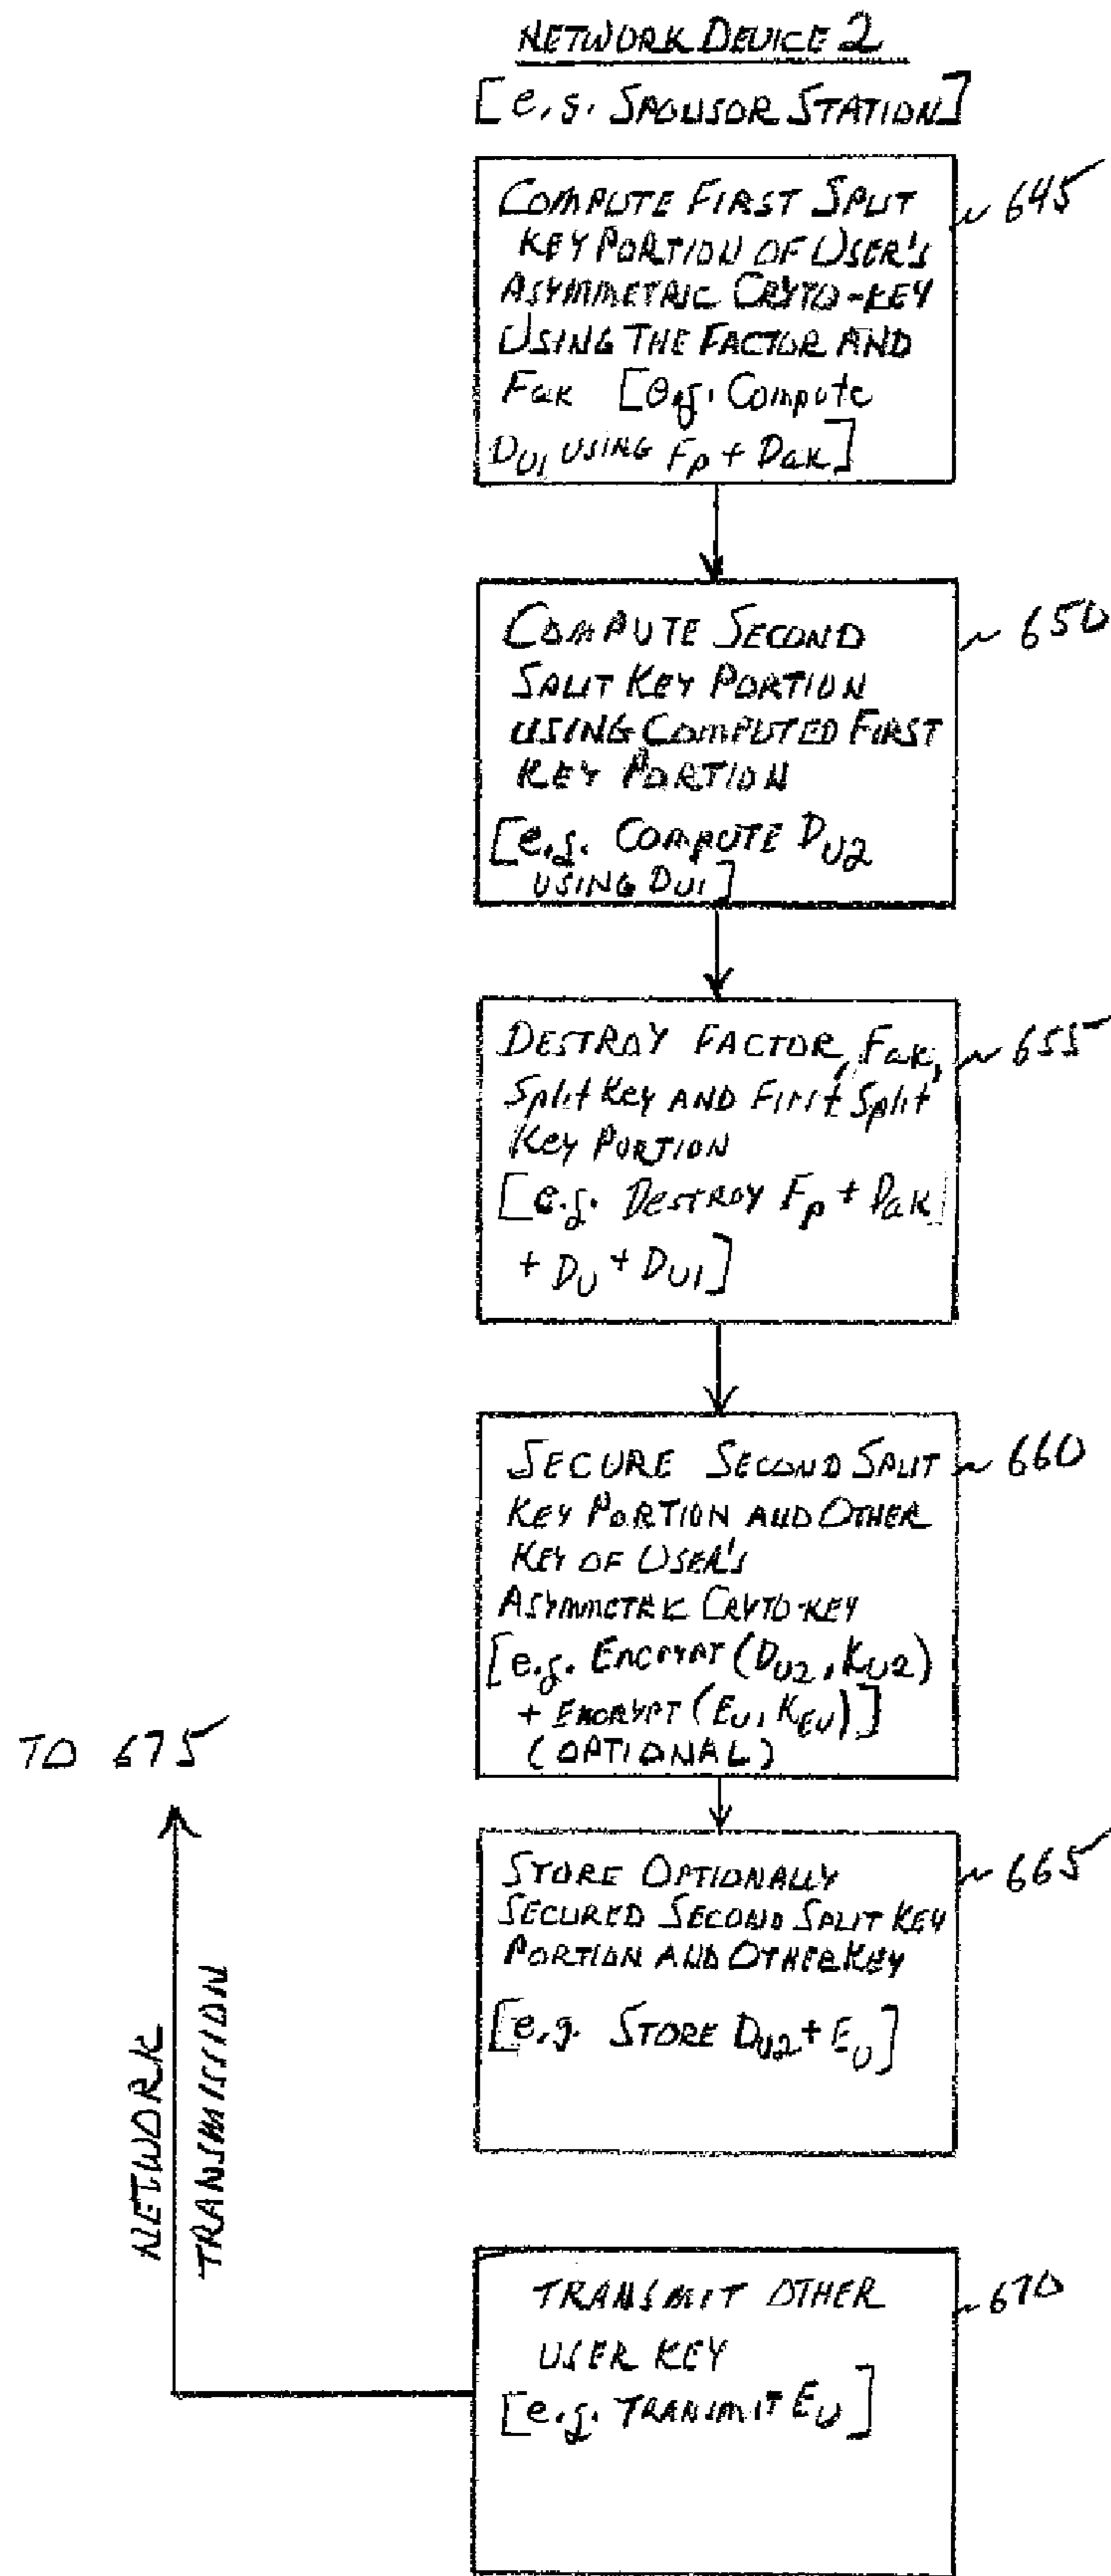 NETWORK DEVICE 2
[e.g. SPONSOR STATION]
COMPUTE FIRST SPLIT
KEY PORTION OF USER'S
ASYMMETRIC CRYTO-KEY
USING THE FACTOR AND
Fak [e.g. Compute
DU1 USING Fp + Dak]
645
COMPUTE SECOND
SPLIT KEY PORTION
USING COMPUTED FIRST
KEY PORTION
[e.g. COMPUTE DU2
USING DU1]
650
DESTROY FACTOR, Fak,
Split Key AND FIRST Split
Key PORTION
[e.g. DESTROY Fp + Dak
+ DU + DU1]
655
SECURE SECOND SPLIT
KEY PORTION AND OTHER
KEY OF USER'S
ASYMMETRIC CRYTO-KEY
[e.g. ENCRYPT (DU2, KU2)
+ ENCRYPT (EU, KEU)]
(OPTIONAL)
660
TO 675
STORE OPTIONALLY
SECURED SECOND SPLIT KEY
PORTION AND OTHER KEY
[e.g. STORE DU2 + EU]
665
NETWORK
TRANSMISSION
TRANSMIT OTHER
USER KEY
[e.g. TRANSMIT EU]
670